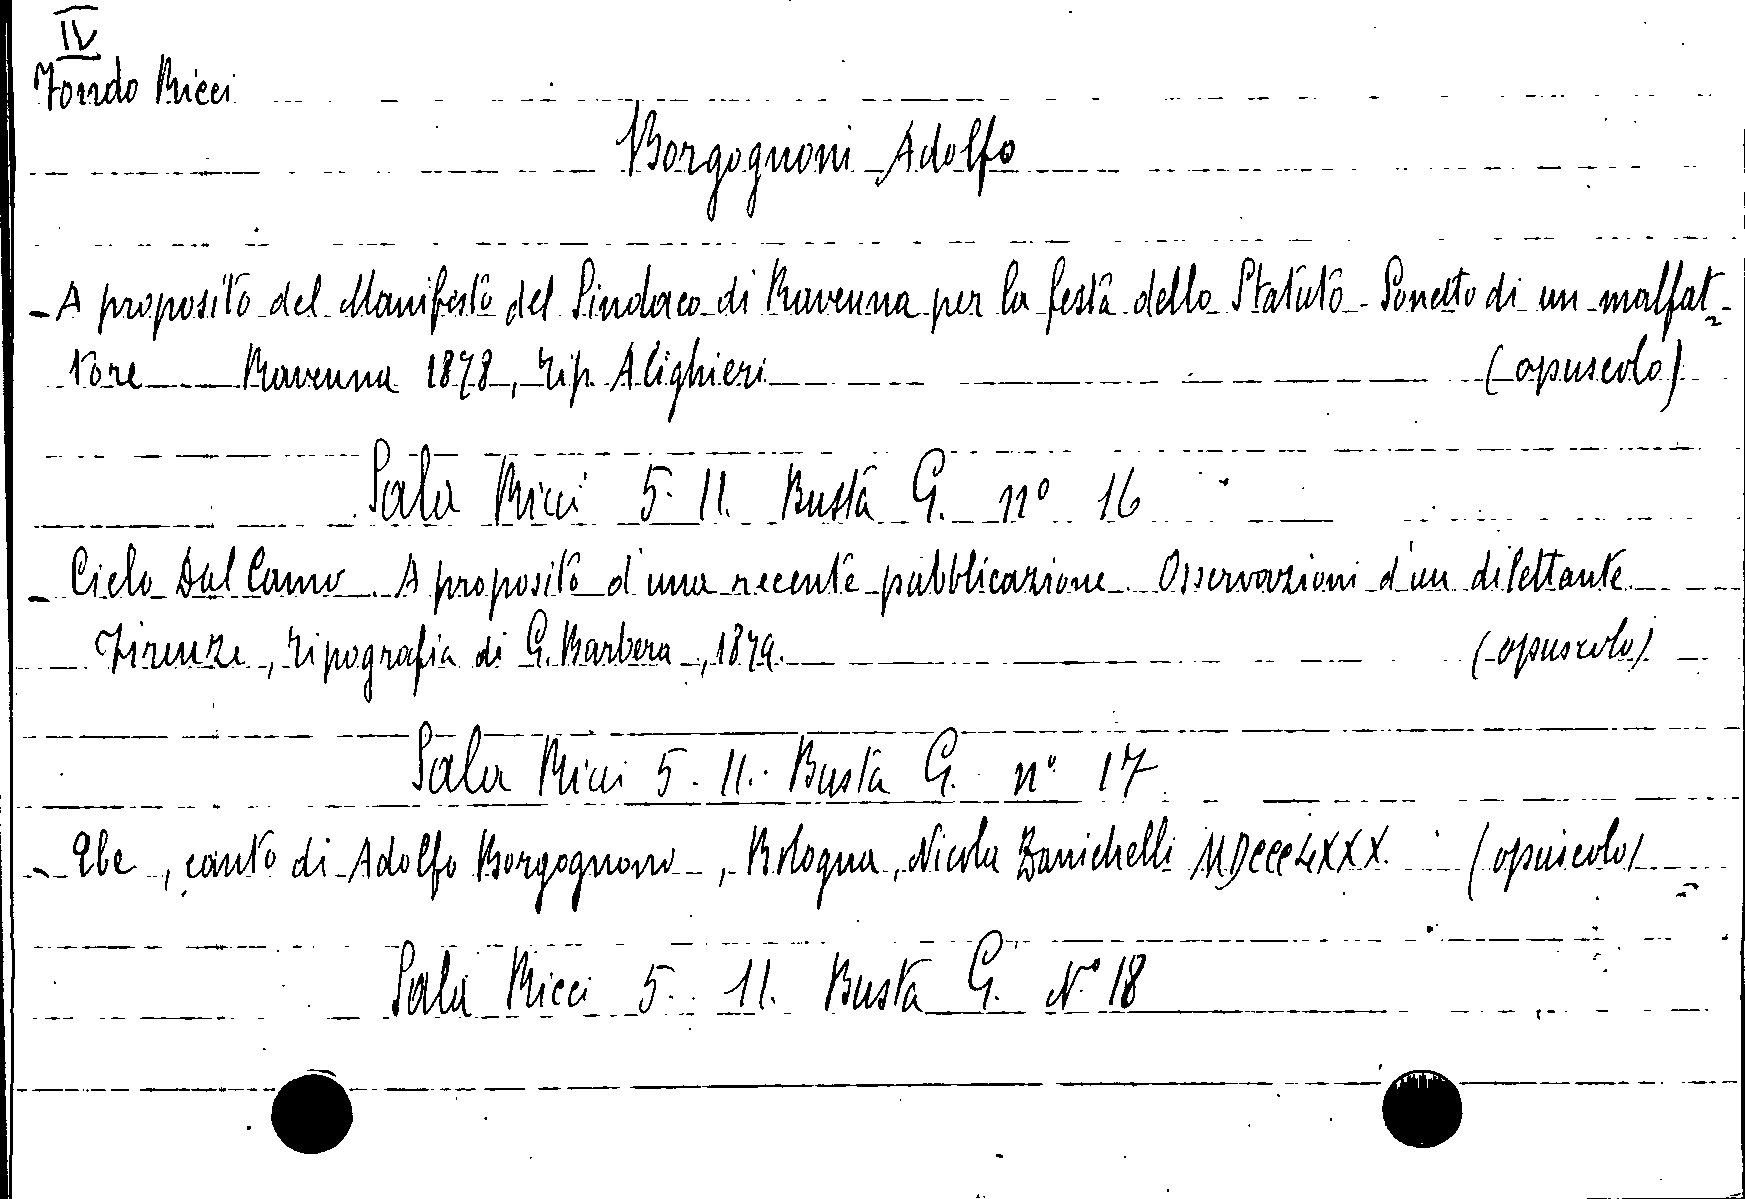 IV
Fondo Ricci
Borgognoni Adolfo
- A proposito del Manifesto del Sindaco di Ravenna per la festa dello Statuto - Sonetto di un malfat-
tore Ravenna 1878, Tip. Alighieri (opuscolo)
Sala Ricci 5. 11. Busta G. n° 16
- Cielo Dal Camo. A proposito d'una recente pubblicazione. Osservazioni d'un dilettante.
Firenze, tipografia di G. Barbera, 1879. (opuscolo)
Sala Ricci 5. 11. Busta G. n° 17
- Ebe, canto di Adolfo Borgognono, Bologna, Nicola Zanichelli MDCCCLXXX. (opuscolo)
Sala Ricci 5. 11. Busta G. N° 18